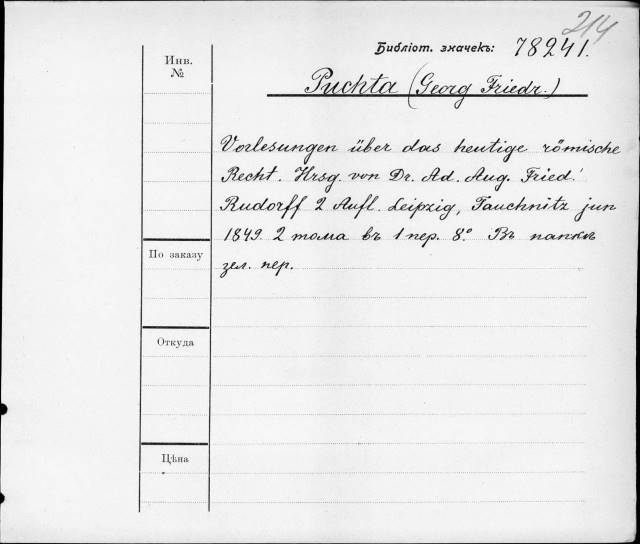 214
Библіот. значекъ: 78241.
Инв.
№
Puchta (Georg Friedr.)
Vorlesungen über das heutige römische
Recht. Hrsg. von Dr. Ad. Aug. Fried.
Rudorff 2 Aufl. Leipzig, Tauchnitz jun
1849. 2 тома въ 1 пер. 8º. Въ папкѣ
зел. пер.
По заказу
Откуда
Цѣна